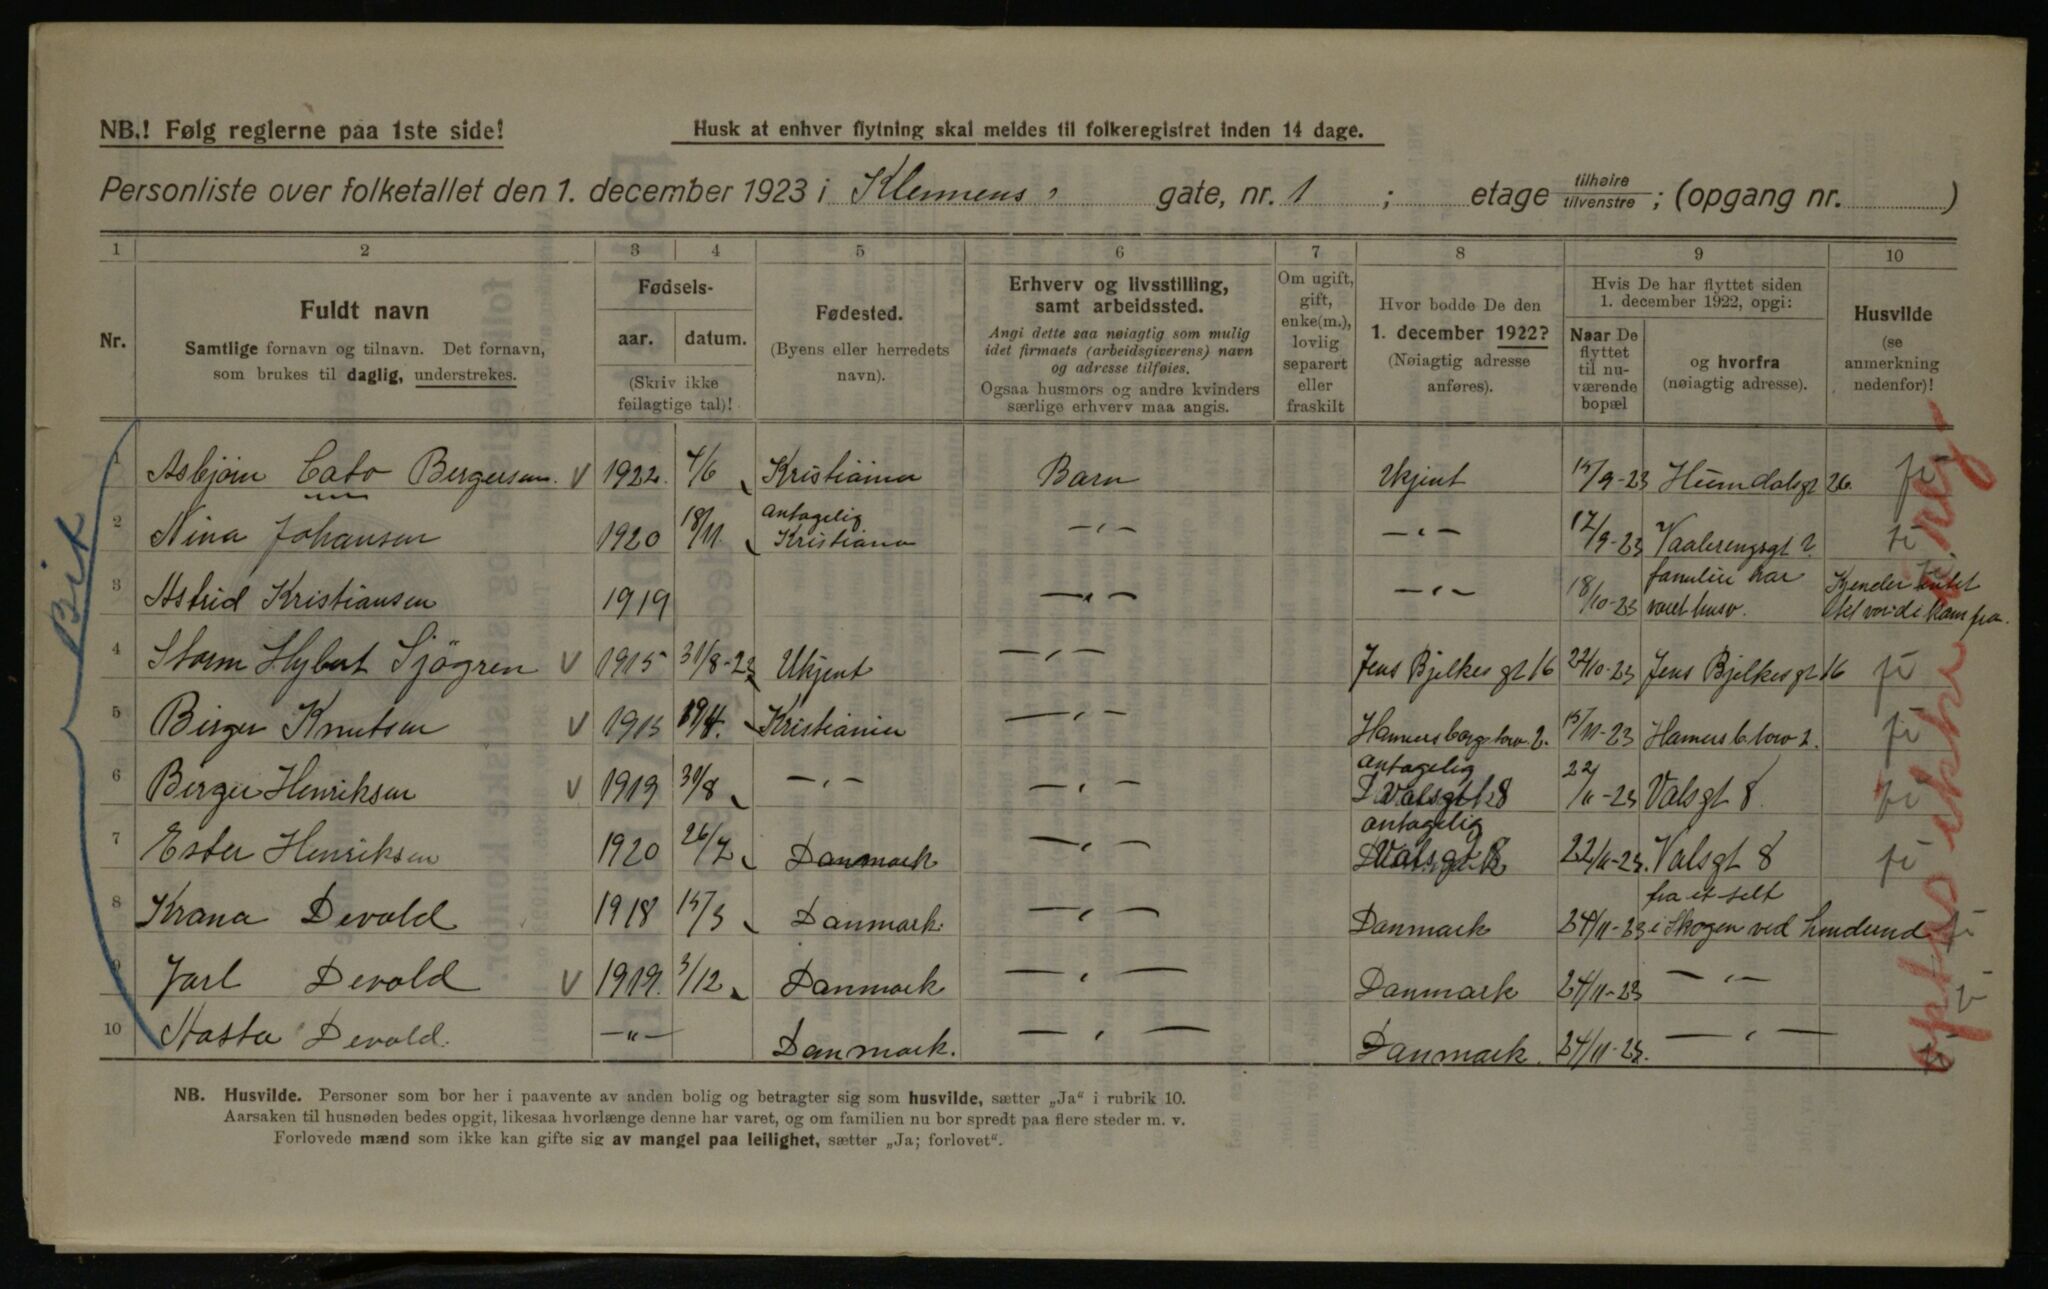 NB.! Følg reglerne paa 1ste side!
Husk at enhver flytning skal meldes til folkeregistret inden 14 dage.
Personliste over folketallet den 1. december 1923 i Klemmens gate, nr. 1 ; etage tilhøire tilvenstre ; (opgang nr. )
1 2 3 4 5 6 7 8 9 10
Nr.
Fuldt navn
Samtlige fornavn og tilnavn. Det fornavn,
som brukes til daglig, understrekes.
Fødsels-
aar. datum.
(Skriv ikke
feilagtige tal)!
Fødested.
(Byens eller herredets
navn).
Erhverv og livsstilling,
samt arbeidssted.
Angi dette saa nøiagtig som mulig
idet firmaets (arbeidsgiverens) navn
og adresse tilføies.
Ogsaa husmors og andre kvinders
særlige erhverv maa angis.
Om ugift,
gift,
enke(m.),
lovlig
separert
eller
fraskilt
Hvor bodde De den
1. december 1922?
(Nøiagtig adresse
anføres).
Hvis De har flyttet siden
1. december 1922, opgi:
Naar De
flyttet
til nu-
værende
bopæl
og hvorfra
(nøiagtig adresse).
Husvilde
(se
anmerkning
nedenfor)!
1 Asbjørn Cato Bergersen. V 1922. 4/6 Kristiania Barn Ukjent 15/9-23 Heimdalsgt 26.
2 Nina Johansen 1920 18/11. antagelig Kristiania -"- -"- 17/9-23 Vaalerengsgt 2.
3 Astrid Kristiansen 1919 -"- -"- 18/10-23 familie har været husv. Kjender
4 Storm Sjögren V 1915 31/8-23 Ukjent -"- Jens Bjelkes gt 16 22/10-23 Jens Bjelkes gt 16
5 Birger Knutsen V 1915 19/4. Kristiania -"- Hamersborg torv. 2. 15/11-23 Hamersb. torv 2.
6 Berger Henriksen V 1919 31/8 -"- -"- antagelig Valsgt 8 22/11-23 Valsgt 8.
7 Ester Henriksen 1920 26/7 Danmark -"- antagelig Valsgt 8 22/11-23. Valsgt 8
8 Krana Devold 1918 15/3 Danmark. -"- Danmark 24/11-23 fra et telt i Skogen ved
9 Jarl Devold V 1919. 3/12 Danmark -"- Danmark 24/11-23 -"-
10 Devold. -"- Danmark. -"- Danmark. 24/11-23. -"-
NB. Husvilde. Personer som bor her i paavente av anden bolig og betragter sig som husvilde, sætter „Ja“ i rubrik 10.
Aarsaken til husnøden bedes opgit, likesaa hvorlænge denne har varet, og om familien nu bor spredt paa flere steder m. v.
Forlovede mænd som ikke kan gifte sig av mangel paa leilighet, sætter „Ja; forlovet“.